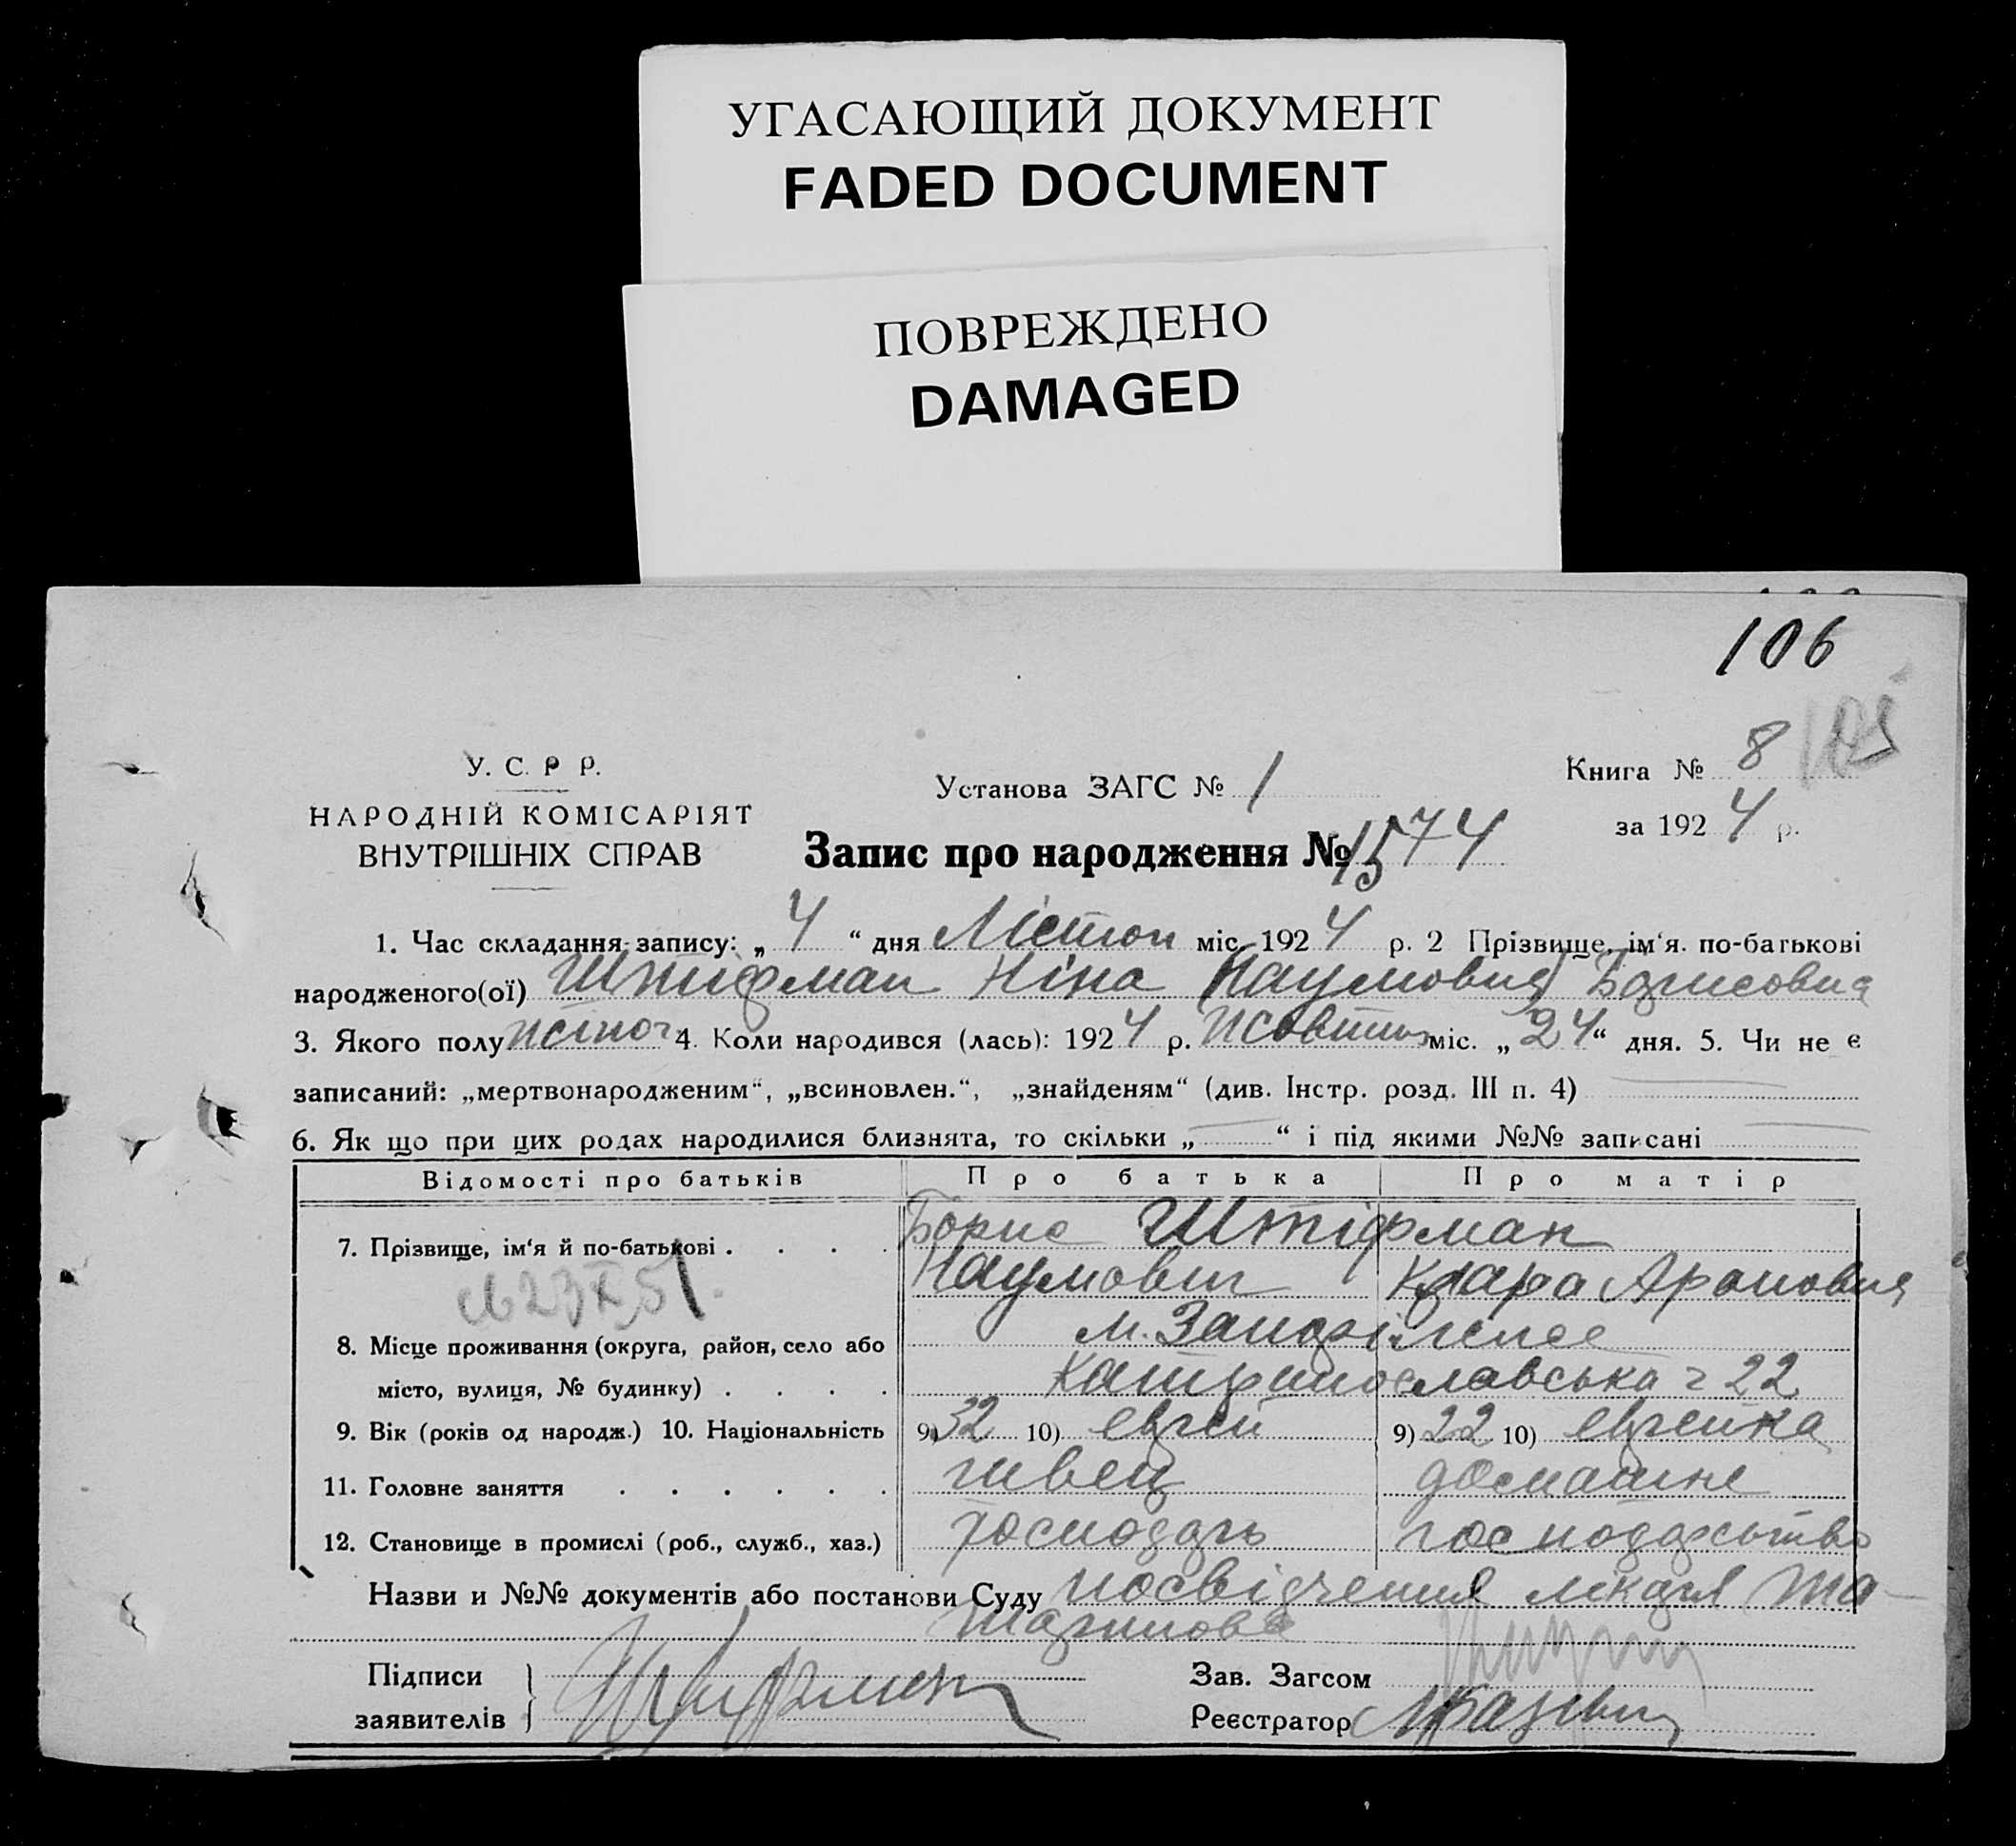 УГАСАЮЩИЙ ДОКУМЕНТ
FADED DOCUMENT
ПОВРЕЖДЕНО
DAMAGED
106
У. С. Р Р.
НАРОДНІЙ КОМІСАРІЯТ
ВНУТРІШНІХ СПРАВ
Установа ЗАГС № 1
Книга № 8
за 1924 р.
Запис про народження № 1574
1. Час складання запису: „ 4 “ дня Лістоп міс. 1924 р. 2 Прізвище, ім‘я. по-батькові
народженого(ої) Штифман Ніна (Наумовна) Борисовна
3. Якого полу жіноч 4. Коли народився (лась): 1924 р. Жовтня міс. „ 24 “ дня. 5. Чи не є
записаний: „мертвонародженим“, „всиновлен.“, „знайденям“ (див. Інстр. розд. III п. 4)
6. Як що при цих родах народилися близнята, то скільки „ — “ і під якими №№ записані —
Відомості про батьків Про батька Про матір
7. Прізвище, ім‘я й по-батькові . . . . Борис Штіфман
Наумович Клара Ароновна
8. Місце проживання (округа, район, село або м. Запоріжжє
місто, вулиця, № будинку) . . . . Катеринославська 22
9. Вік (років од народж.) 10. Національність 9) 32 10) єврей 9) 22 10) єврейка
11. Головне заняття . . . . . . швец домашнє
12. Становище в промислі (роб., служб., хаз.) господарь господарство
Назви и №№ документів або постанови Суду посвідчення лікаря
Підписи
заявителів Штифман
Зав. Загсом
Реєстратор